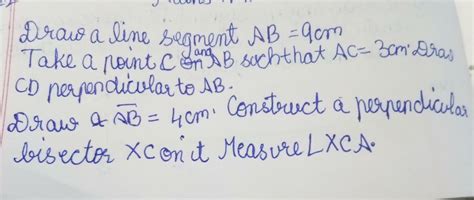 Draw a line segment AB = 9cm
Take a point C on and AB such that AC = 3cm. Draw
CD perpendicular to AB.
Draw a AB = 4cm. Construct a perpendicular
bisector XC on it Measure LXCA.